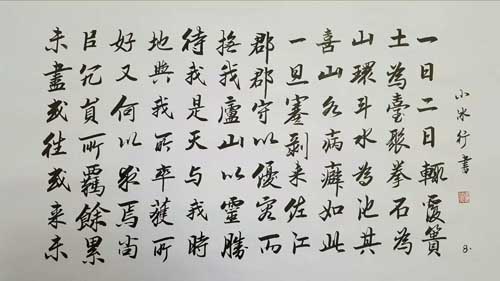 一日二日輒覆簣
土為臺聚拳石為
山環斗水為池其
喜山水病癖如此
一旦蹇剥来佐江
郡郡守以優容而
撫我廬山以靈勝
待我是天与我時
地與我所卒獲所
好又何以求焉尚
㠯冗員所羈餘累
未盡或往或来未
小冰行書
8.